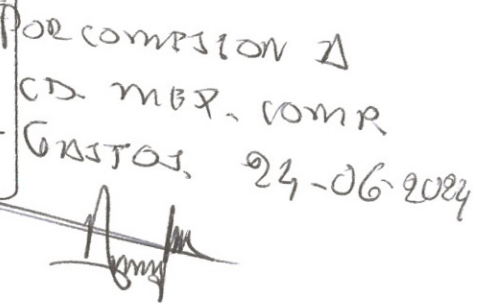 POR COMPSION A
CD. MBX. COMR
GASTOS. 24-06-2024